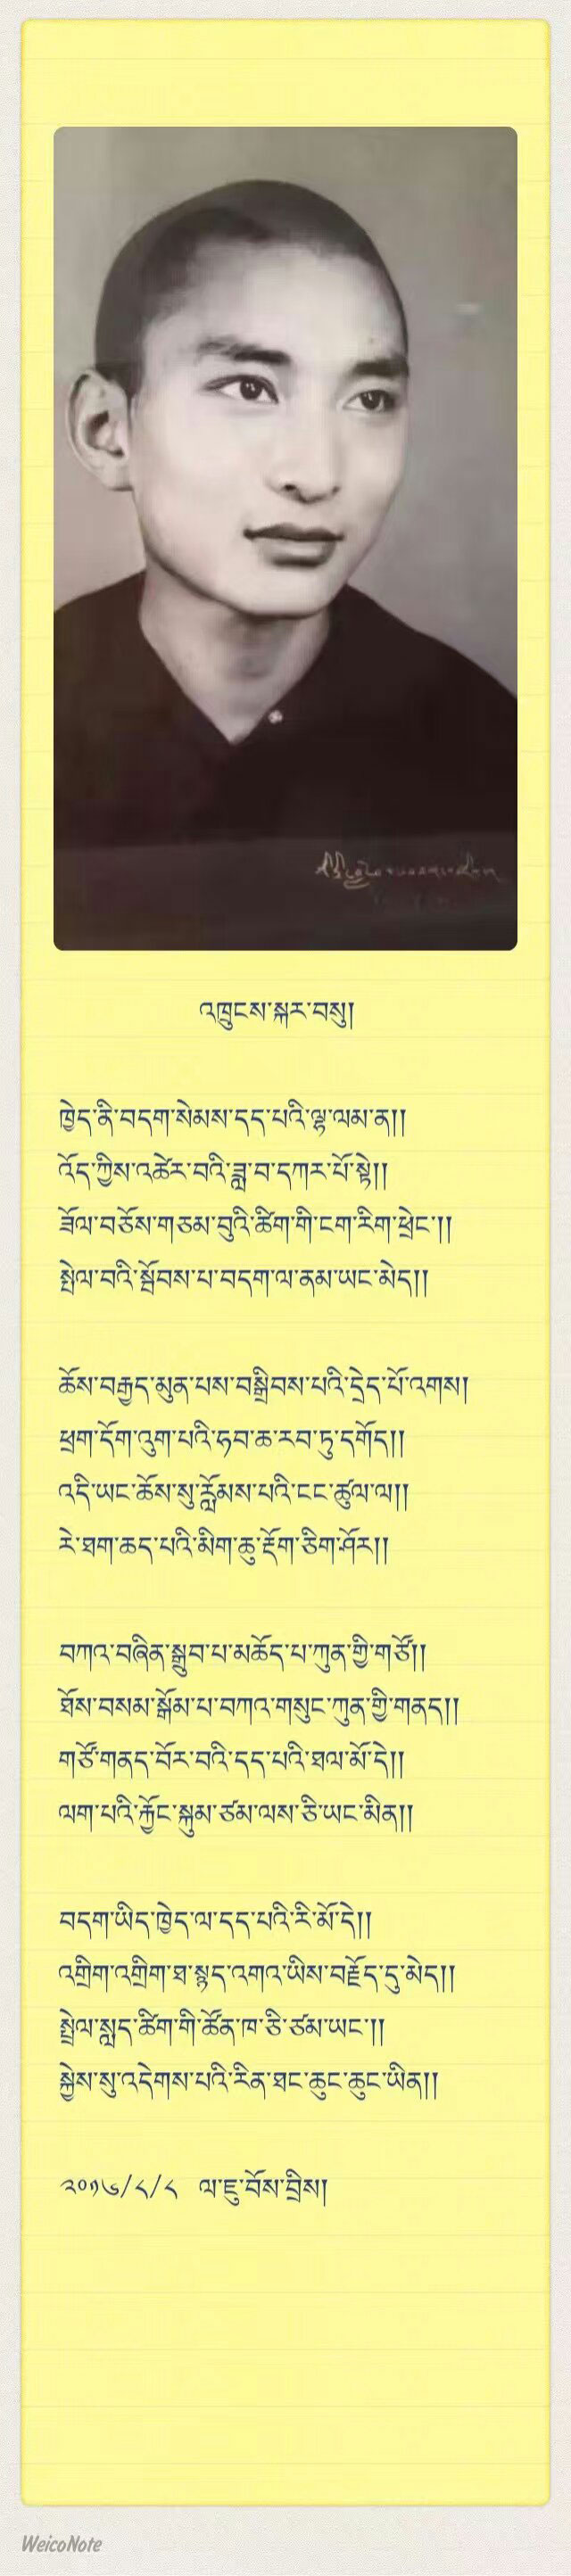 འཁྲུངས་སྐར་བསུ།
ཁྱེད་ནི་བདག་སེམས་དད་པའི་ལྷ་ལམ་ན།།
འོད་ཀྱིས་འཚེར་བའི་ཟླ་བ་དཀར་པོ་སྟེ།།
ཟོལ་བཅོས་གཅམ་བུའི་ཚིག་གི་ངག་རིག་ཕྲེང་།།
སྤེལ་བའི་སྤོབས་པ་བདག་ལ་ནམ་ཡང་མེད།།
ཆོས་བརྒྱད་མུན་པས་བསྒྲིབས་པའི་དྲེད་པོ་འགས།
ཕྲག་དོག་འུག་པའི་ཧབ་ཆ་རབ་ཏུ་དགོད།།
འདི་ཡང་ཆོས་སུ་རློམས་པའི་ངང་ཚུལ་ལ།།
རེ་ཐག་ཆད་པའི་མིག་ཆུ་རྡོག་ཅིག་ཤོར།།
བཀའ་བཞིན་སྒྲུབ་པ་མཆོད་པ་ཀུན་གྱི་གཙོ།།
ཐོས་བསམ་སྒོམ་པ་བཀའ་གསུང་ཀུན་གྱི་གནད།།
གཙོ་གནད་བོར་བའི་དད་པའི་ཐལ་མོ་དེ།།
ལག་པའི་རྐྱོང་སྐུམ་ཙམ་ལས་ཅི་ཡང་མིན།།
བདག་ཡིད་ཁྱེད་ལ་དད་པའི་རི་མོ་དེ།།
འགྲིག་འགྲིག་ཐ་སྙད་འགའ་ཡིས་བརྗོད་དུ་མེད།།
སྤེལ་སླད་ཚིག་གི་ཚོན་ཁ་ཅི་ཙམ་ཡང་།།
སྐྱེས་སུ་འདེགས་པའི་རིན་ཐང་ཆུང་ཆུང་ཡིན།།
༢༠༡༦/༨/༨ ལ་ཇུ་བོས་བྲིས།
WeicoNote